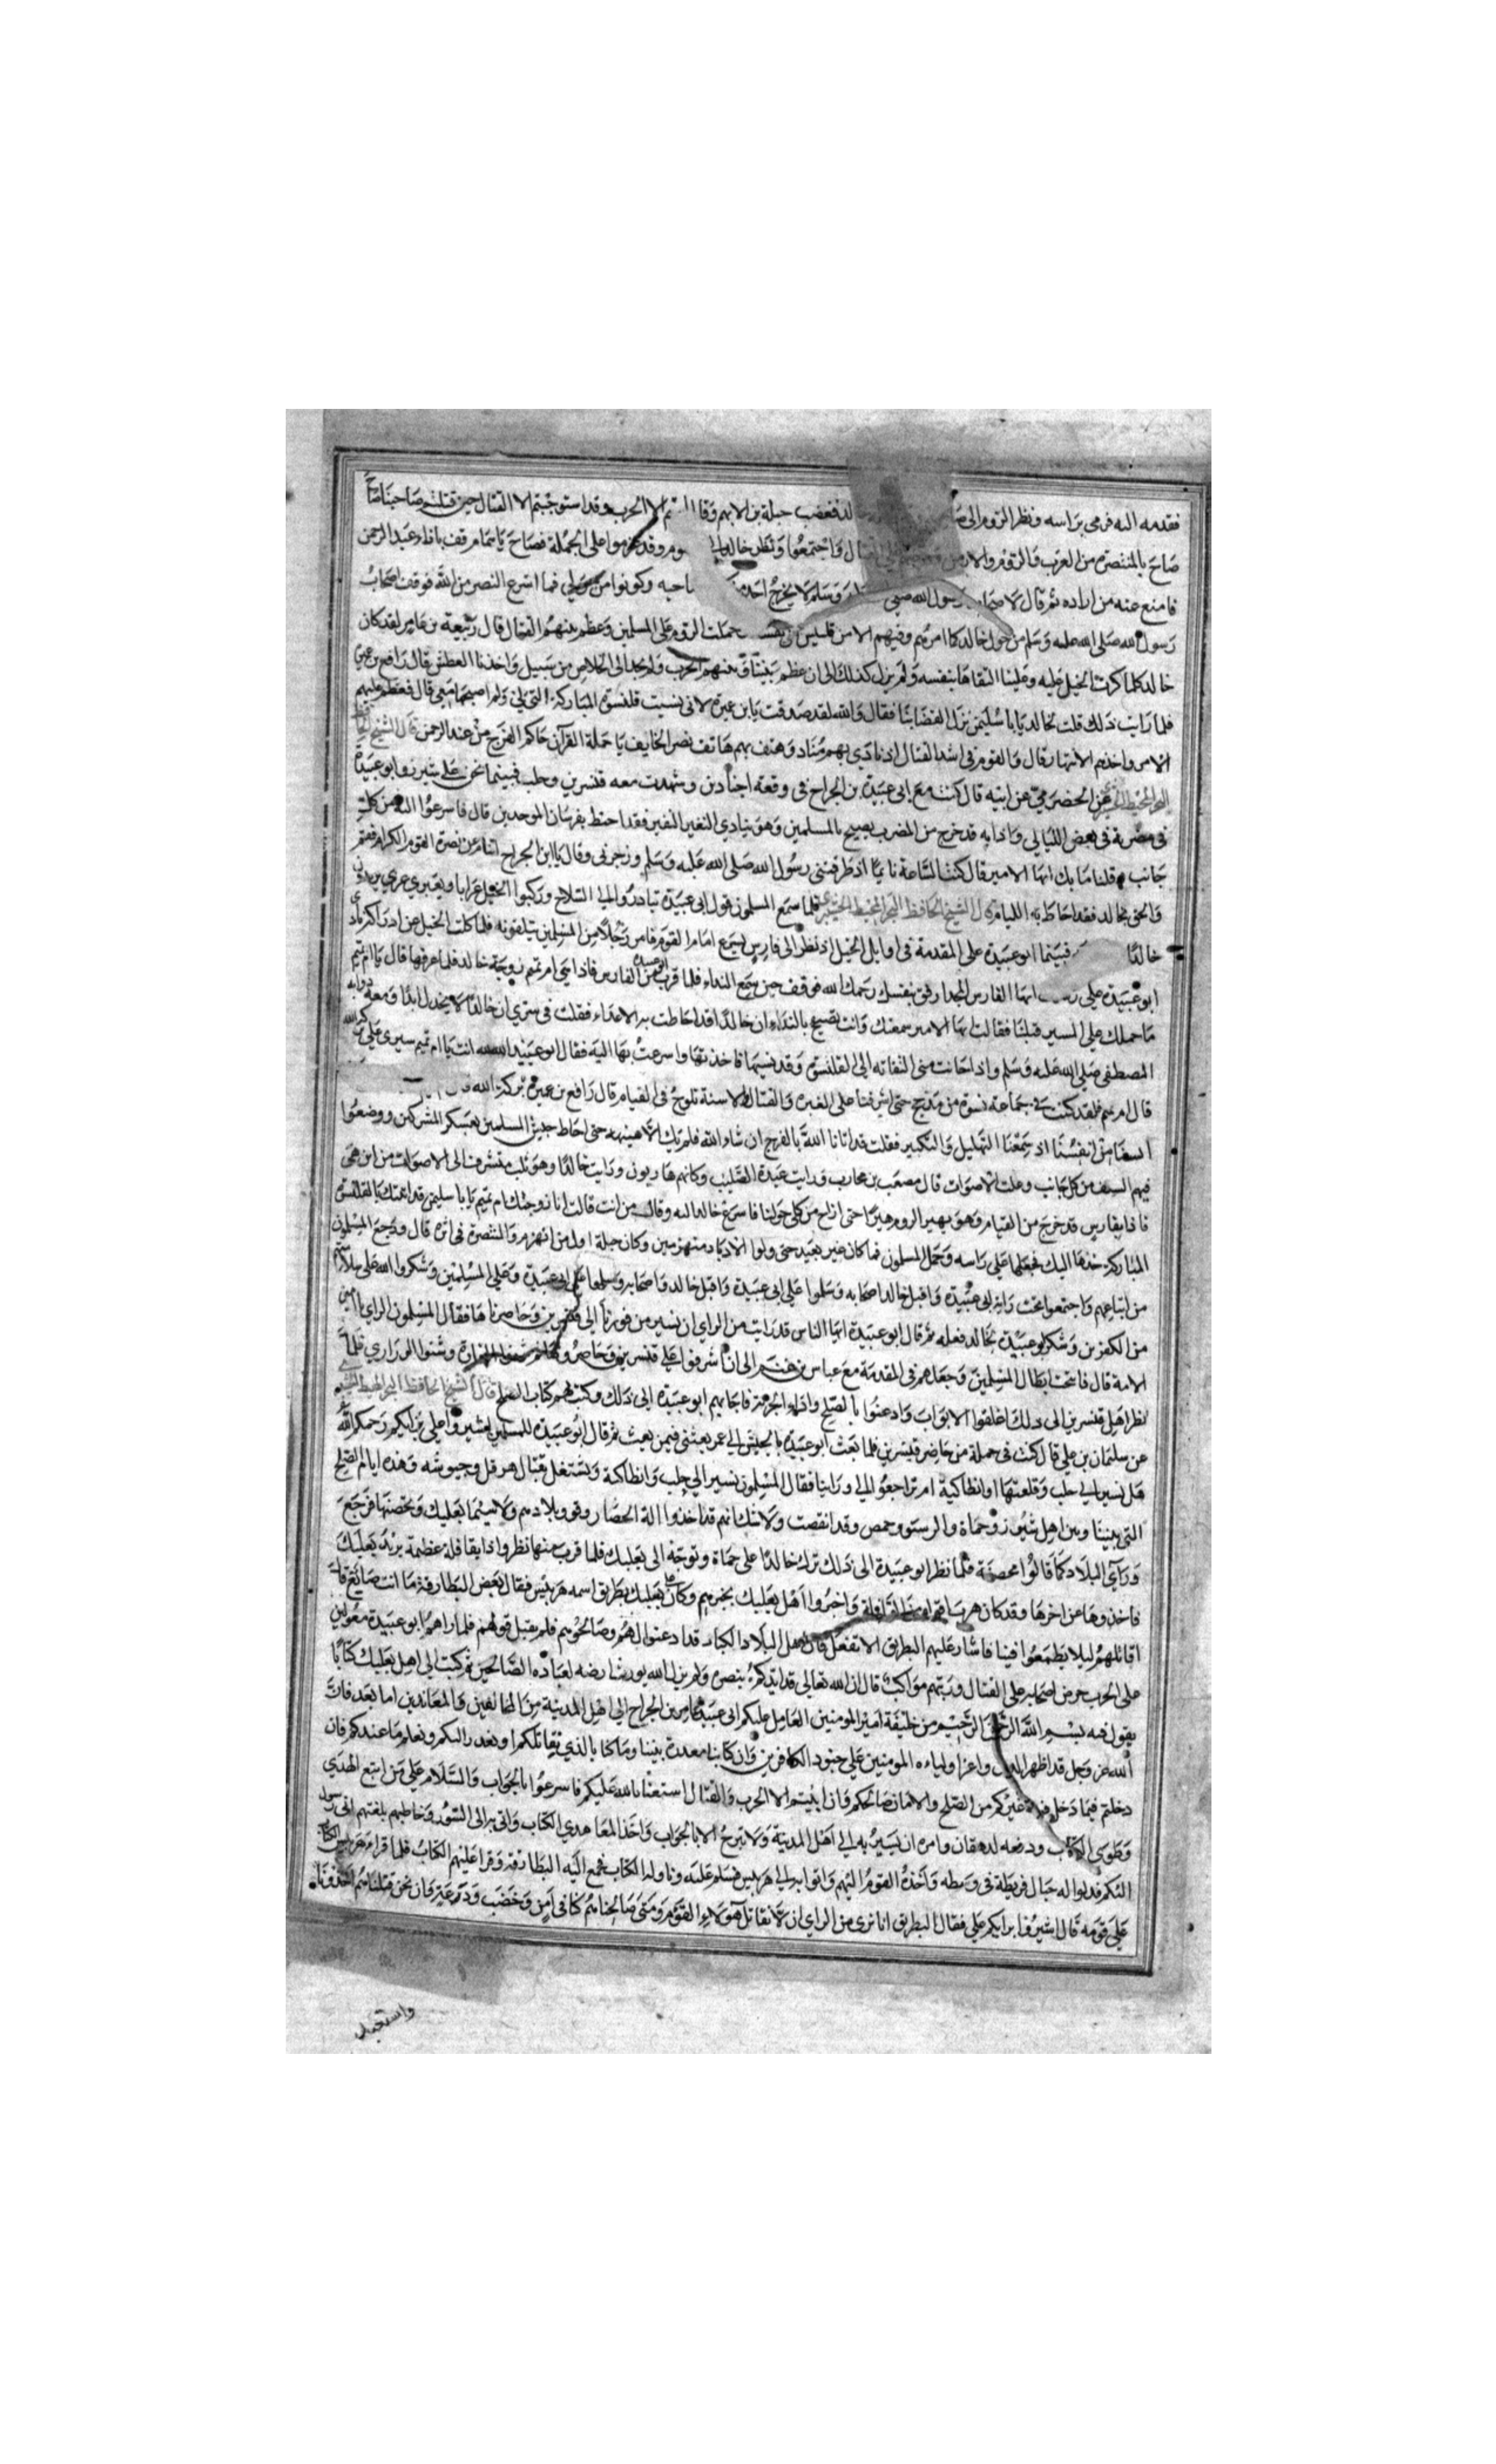 فقدمه اليه فرمى براسه ونظر الروم الى فغضب جبلة بن الايهم وقال الا الحرب وقد استوجبتم الا القتال حين قتلتم صاحبنا
صاح بالمتنصرة من العرب والروم والارمن واجتمعوا ونظر خالد الى وقد عزموا على الحملة فصاح عبد الرحمن
فامنع عنه من اراده ثم قال رسول الله صلى وسلم لا يخرج احد وكونوا من حولي فما اسرع النصر من الله فوقف اصحاب
رسول الله صلى الله عليه وسلم من حول خالد كما امرهم وفيهم الا من حملت الروم على المسلمين وعظم بينهم القتال قال ربيعة بن عامر لقد كان
خالد كلما كرت الخيل عليه وعلينا التقاها بنفسه ولم يزل كذلك الى ان عظم بيننا وبينهم الحرب ولم نجد الى الخلاص من سبيل واخذنا العطش قال رافع بن عميرة
فلما رايت ذلك قلت لخالد يا با سليمن نزل القضا بنا فقال والله لقد صدقت يابن عميرة لانى نسيت قلنسوة المباركة التى لي ولم اصحبها معي قال فعظم عليهم
الامر واخذهم الانبهار قال والقوم في اشد القتال اذ نادى بهم مناد وهتف بهم هاتف نصر الخايف يا حملة القرآن جاكم الفرج من عند الرحمن قال الشيخ
عن الحضرمي عن ابيه قال كنت مع ابى عبيدة بن الجراح في وقعة اجنادين وشهدت معه قنسرين وحلب فبينما نحن على شيزر وابو عبيدة
في مضربه في بعض الليالي واذا به قد خرج من المضرب يصيح بالمسلمين وهو ينادي النفير النفير فقد احيط بفرسان الموحدين قال فاسرعوا اليه من كل
جانب وقلنا ما بك ايها الامير قال كنت الساعة نايما اذ طرقنى رسول الله صلى الله عليه وسلم وزجرني وقال يا ابن الجراح اتنام عن نصرة القوم الكرام فقم
والحق بخالد فقد احاط به الليام قال الشيخ الحافظ فلما سمع المسلمون قول ابى عبيدة تبادروا الى السلاح وركبوا الخيل
خالدا فبينما ابو عبيدة على المقدمة في اوايل الخيل اذ نظر الى فارس يسرع امام القوم فامر رجلا من المسلمين يتلقونه فلما كلت الخيل عن ادراكه نادى
ابو عبيدة على ايها الفارس المجد ارفق بنفسك رحمك الله فوقف حين سمع النداء فلما قرب ابو عبيدة من الفارس فاذا هي ام تميم زوجة خالد فلما عرفها قال يا ام تميم
ما حملك على المسير قبلنا فقالت ايها الامير سمعتك وانت تصيح بالنداء ان خالدا قد احاطت به الاعداء فقلت في سري ان خالدا لا يخذل ابدا ومعه ذوابه
المصطفى صلى الله عليه وسلم واذا حانت منى التفاته الى القلنسوة وقد نسيها فاخذتها واسرعت بها اليه فقال ابو عبيدة لله انت يا ام تميم سيري على بركة الله
قالت ام تميم فلقد كنت في جماعة نسوة من مذحج حتى اشرفنا على الغبره والقتال والاسنة تلوح في القتام قال رافع بن عميرة
انفسنا اذ سمعنا التهليل والتكبير فقلت قد اتانا الله بالفرج ان شاء الله فلم يك الا هنيهة حتى احاط جيش المسلمين بعسكر المشركين ووضعوا
فيهم السيف من كل جانب وعلت الاصوات قال مصعب بن محارب فرايت عبدة الصليب وكانهم هاربون ورايت خالدا وهو يتشرف الى الاصوات من اين هي
فاذا بفارس قد خرج من القتام وهو يهبر الروم هبرا حتى ازاح من كان حولنا فاسرع خالد اليه وقال من انت قالت انا زوجتك ام تميم يا با سليمن قد اتيتك بالقلنسوة
المباركة خذها اليك فجعلها على راسه وحمل المسلمون فما كان غير بعيد حتى ولوا الادبار منهزمين وكان جبلة اول من انهزم والمتنصرة في اثره قال ورجع المسلمون
من اتباعهم واجتمعوا تحت راية ابى عبيدة واقبل خالد واصحابه وسلموا على ابى عبيدة وعلى المسلمين وشكروا الله على سلامتهم
من الكفرين وشكر ابو عبيدة خالد فعله ثم قال ابو عبيدة ايها الناس قد رايت من الراي ان نسير من فورنا الى قنسرين ونحاصرها فقال المسلمون الراي يا امين
الامة قال فانتخب ابطال المسلمين وجعلهم في المقدمة مع عباس بن غنم الى ان اشرفوا على قنسرين وحاصروها وشنوا الغارة
نظر اهل قنسرين الى ذلك اغلقوا الابواب واذعنوا بالصلح واداء الجزية فاجابهم ابو عبيدة الى ذلك وكتب لهم كتاب الصلح قال الشيخ الحافظ
عن سليمان بن علي قال كنت في حملة من حاضر قنسرين فلما بعث ابو عبيدة بالجيش الى عمر بعثنى فيمن بعث ثم قال ابو عبيدة للمسلمين اشيروا علي برايكم رحمكم الله
هل نسير الى حلب وقلعتها او انطاكية ام تراجعوا الى وراينا فقال المسلمون نسير الى حلب وانطاكية ونشتغل بقتال هرقل وجيوشه وهذه ايام الصلح
التى بيننا وبين اهل شيزر وحماة والرستن وحمص وقد انقصت ولا شك انهم قد اخذوا الة الحصار وقووا بلادهم ولا سيما بعلبك وتحصنها فرجع
وراي البلاد كما قالوا محصنة فلما نظر ابو عبيدة الى ذلك ترك خالدا على حماة وتوجه الى بعلبك فلما قرب منها نظروا اذا بقافلة عظيمة يريد بعلبك
فاخذوها عن اخرها وقد كان هرب قوم من القافلة واخبروا اهل بعلبك بخبرهم وكان على بعلبك بطريق اسمه هربيس فقال بعض البطارقة ما انت صانع قال
اقاتلهم ليلا يطمعوا فينا فاشار عليهم البطريق الا تفعل فان اهل البلاد الكبار قد اذعنوا لهم وصالحوهم فلم يقبل قولهم فلما راهم ابو عبيدة معولين
على الحرب حرض اصحابه على القتال ورتبهم مواكب قال ان الله تعالى قد ايدكم بنصره ولم يزل الله يورثنا ارضه لعباده الصالحين ثم كتب الى اهل بعلبك كتابا
يقول فيه بسم الله الرحمن الرحيم من خليفة امير المومنين العامل عليكم ابى عبيدة عامر بن الجراح الى اهل المدينة من المخالفين والمعاندين اما بعد فان
الله عز وجل قد اظهر الدين واعز اولياءه المومنين على جنود الكافرين وان كتابنا معذرة بيننا
دخلتم فيما دخل فيه غيركم من الصلح والامان صالحناكم وان ابيتم الا الحرب والقتال استعنا بالله عليكم فاسرعوا بالجواب والسلام على من اتبع الهدى
وطوى الكتاب ودفعه لدهقان وامره ان يسير به الى اهل المدينة ولا تبرح الا بالجواب واخذ المعاهدي الكتاب واتى به الى السور وخاطبهم بلغتهم انى رسول
اليكم فدلوا له حبال فربطه في وسطه واخذه القوم اليهم واتوا به الى هربيس فسلم عليه وناوله الكتاب فجمع اليه البطارقة وقرا عليهم الكتاب فلما قراء هربيس الكتاب
على قومه قال اشيروا برايكم علي فقال البطريق انا نرى من الراي ان لا نقاتل هولاء القوم ومتى صالحناهم كنا في امن وخصب
واستعبد